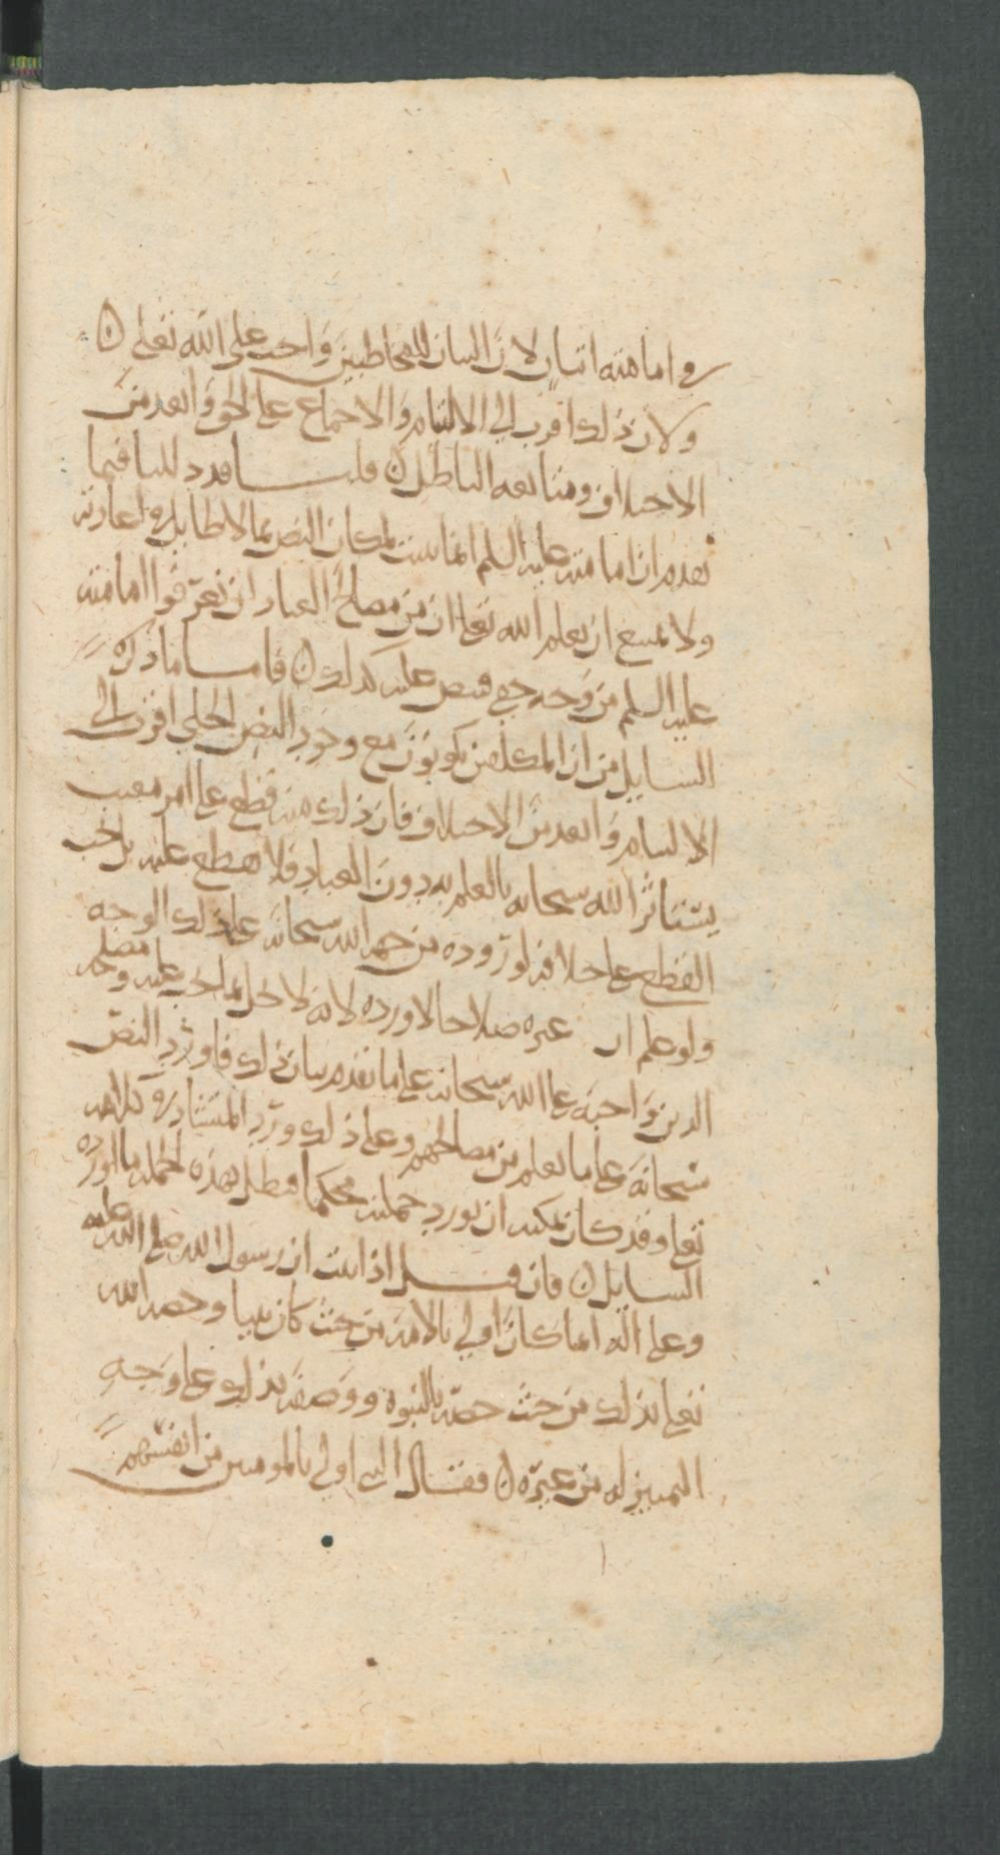 في امامته اتيان لان البيان للمخاطبين واجب على الله تعلى ن
ولان ذلك اقرب الى الالتيام والاجتماع على الحق وابعد من
الاختلاف ومتابعه الباطل ن قلنا قد دللنا فيما
تقدم ان امامته عليه السلم انما تثبت لمكان النص بما لا طايل في اعادته
ولا يمتنع ان يعلم الله تعلى ان من مصالح العباد ان يعرفوا امامته
عليه السلم من وجه خفي فنص عليه كذلك ن فاما ما ذكره
السايل من ان المكلفين يكونون مع وجود النص الجلي اقرب الى
الالتيام وابعد من الاختلاف فان ذلك منه قطع على امر مغيب
يستاثر الله سبحانه بالعلم به دون العباد فلا نقطع عليه بل يجب
القطع على خلافه لوروده من جهه الله سبحانه على ذلك الوجه
ولو علم ان غيره صلاحا لاورده لانه لا يخل بما يجب عليه ومصلحه
الدين واجبه على الله سبحانه على ما تقدم بيان ذلك فاورد النص
سبحانه على ما يعلم من مصالحهم وعلى ذلك ورد المتشابه في كلامه
تعلى وقد كان يمكنه ان يورد جملته محكما فبطل بهذه الجمله ما اورده
السايل ن فان قيل اذا ثبت ان رسول الله صلى الله عليه
وعلى اله انما كان اولى بالامه من حيث كان نبيا وخصه الله
تعلى بذلك من حيث خصه بالنبوه ووصفه بذلك على وجه
التمييز له من غيره ن فقال النبي اولى بالمومنين من انفسهم